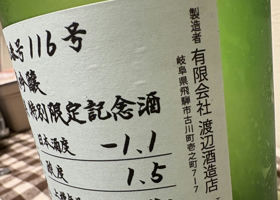 号116号
吟醸
特別限定記念酒
日本酒度 -1.1
酸度 1.5
製造者
有限会社 渡辺酒造店
岐阜県飛騨市古川町壱之町7-7